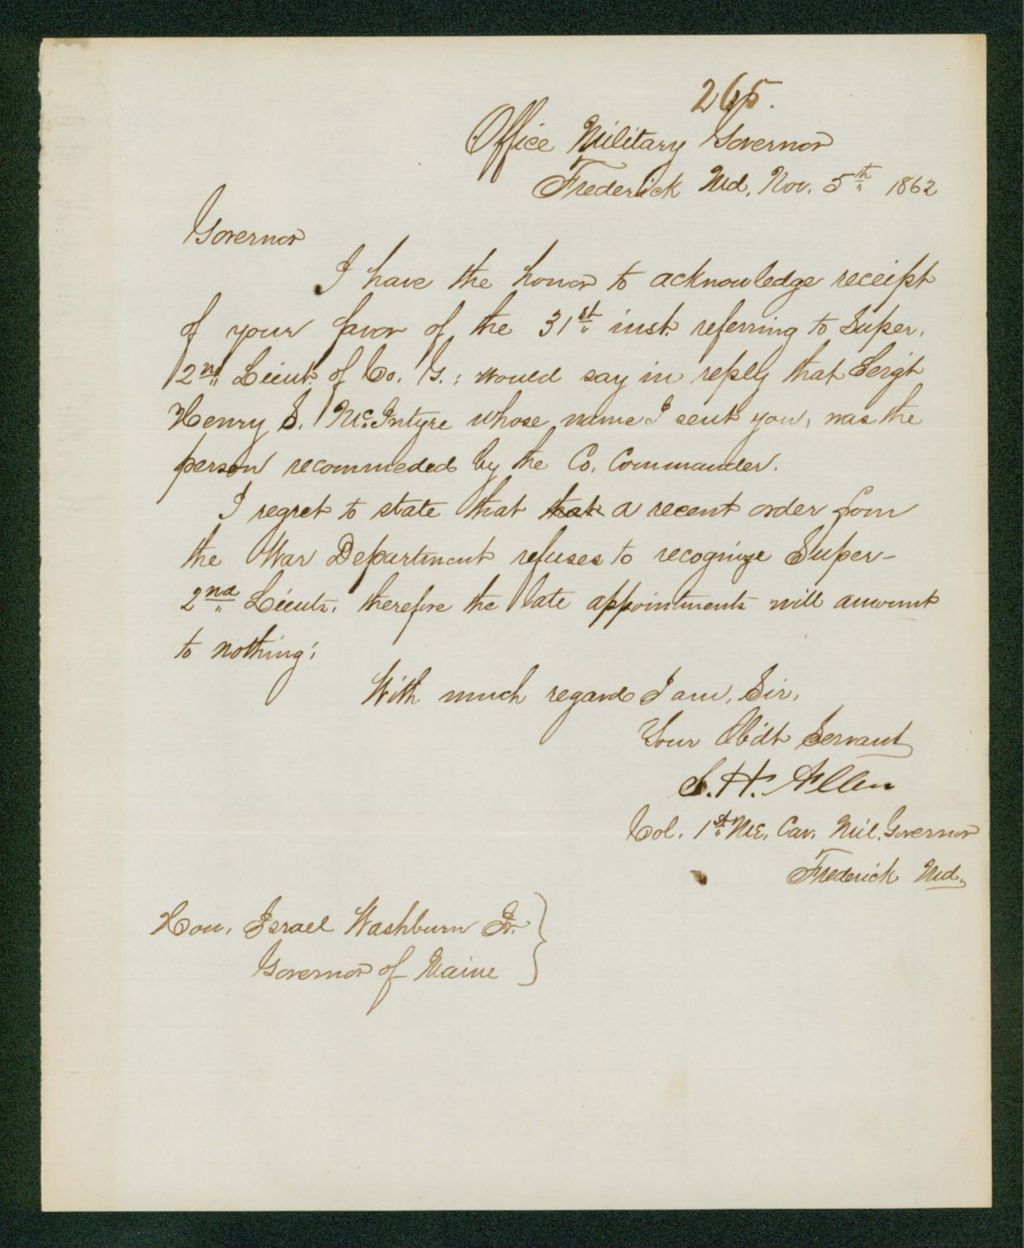 265.
Office Military Governor
Frederick Md. Nov. 5th 1862
Governor
I have the honor to acknowledge receipt
of your favor of the 31st inst. referring to Super.
2nd Lieut. of Co. G.; would say in reply that Sergt
Henry S. McIntyre whose name I sent you, was the
person recommeded by the Co. Commander.
I regret to state that that a recent order from
the War Department refuses to recognize Super-
2nd Lieuts. therefore the late appointments will amount
to nothing;
With much regard I am, Sir,
Your Obdt Servant
S. H. Allen
Col. 1st Me. Cav. Mil. Governor
Frederick Md.
Hon. Israel Washburn Jr.
Governor of Maine